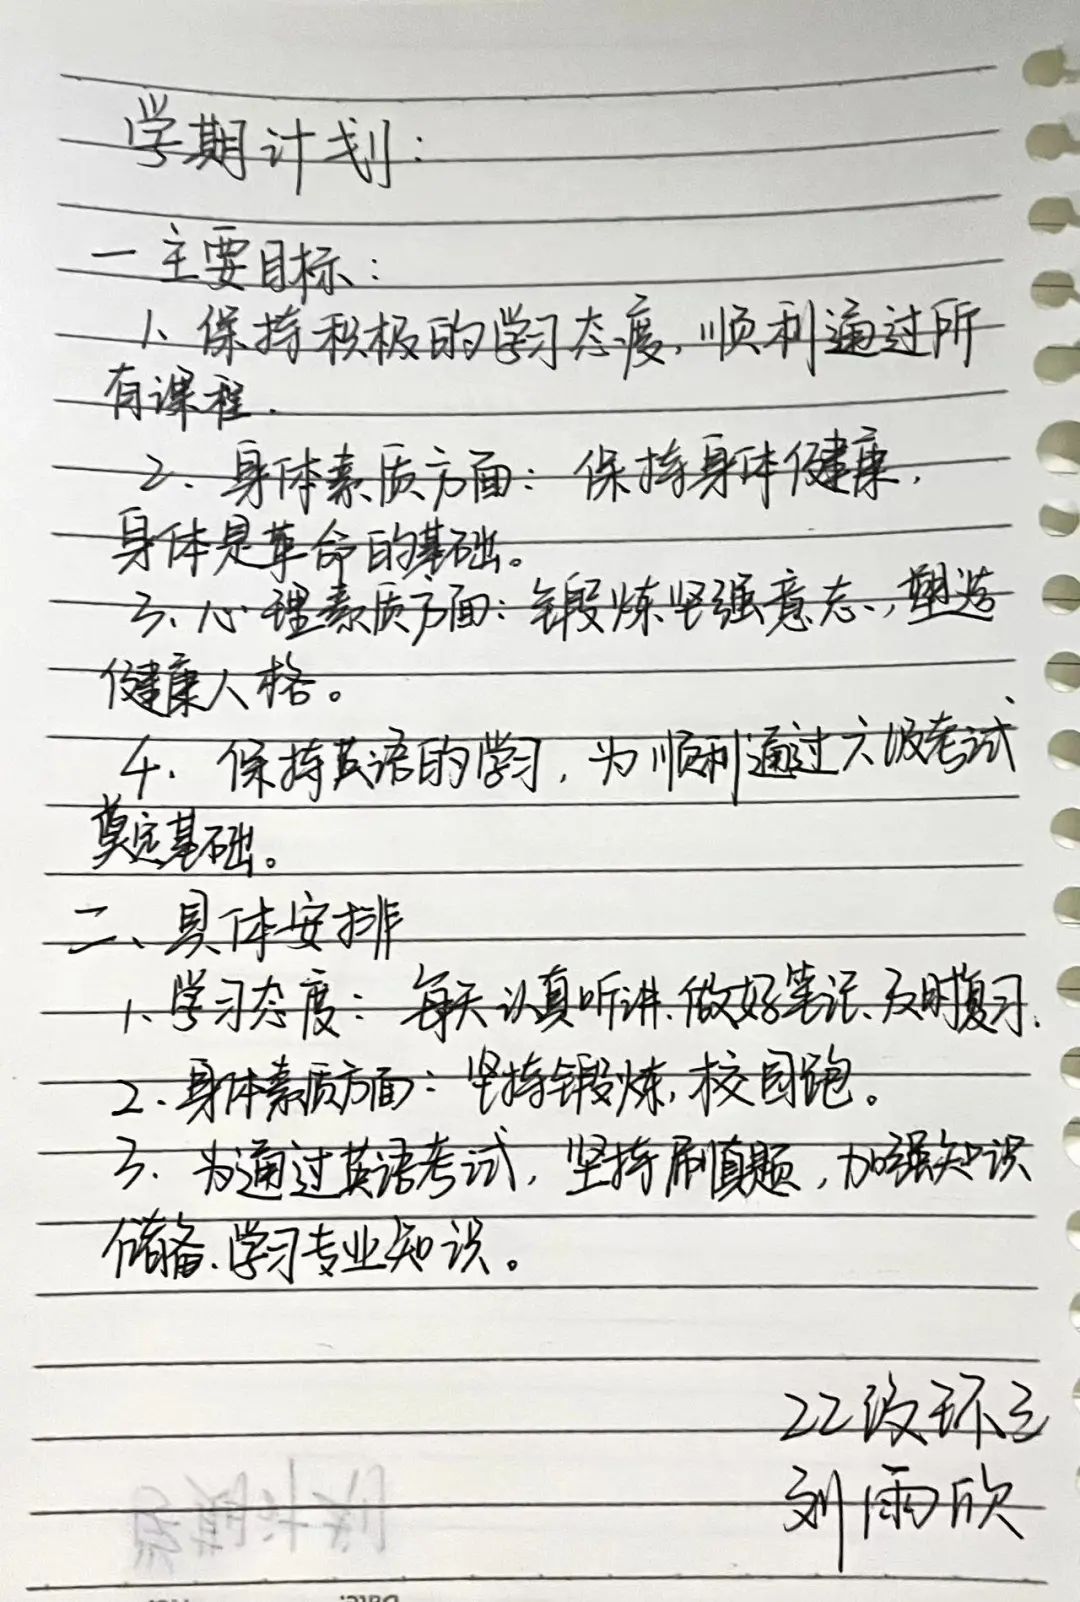 学期计划:
一主要目标:
1、保持积极的学习态度,顺利通过所
有课程.
2、身体素质方面:保持身体健康,
身体是革命的基础。
3、心理素质方面:锻炼坚强意志,塑造
健康人格。
4、保持英语的学习,为顺利通过六级考试
奠定基础。
二、具体安排
1、学习态度:每天认真听讲、做好笔记、及时复习.
2、身体素质方面:坚持锻炼,校园跑。
3、为通过英语考试,坚持刷真题,加强知识
储备、学习专业知识。
22级环工
刘雨欣